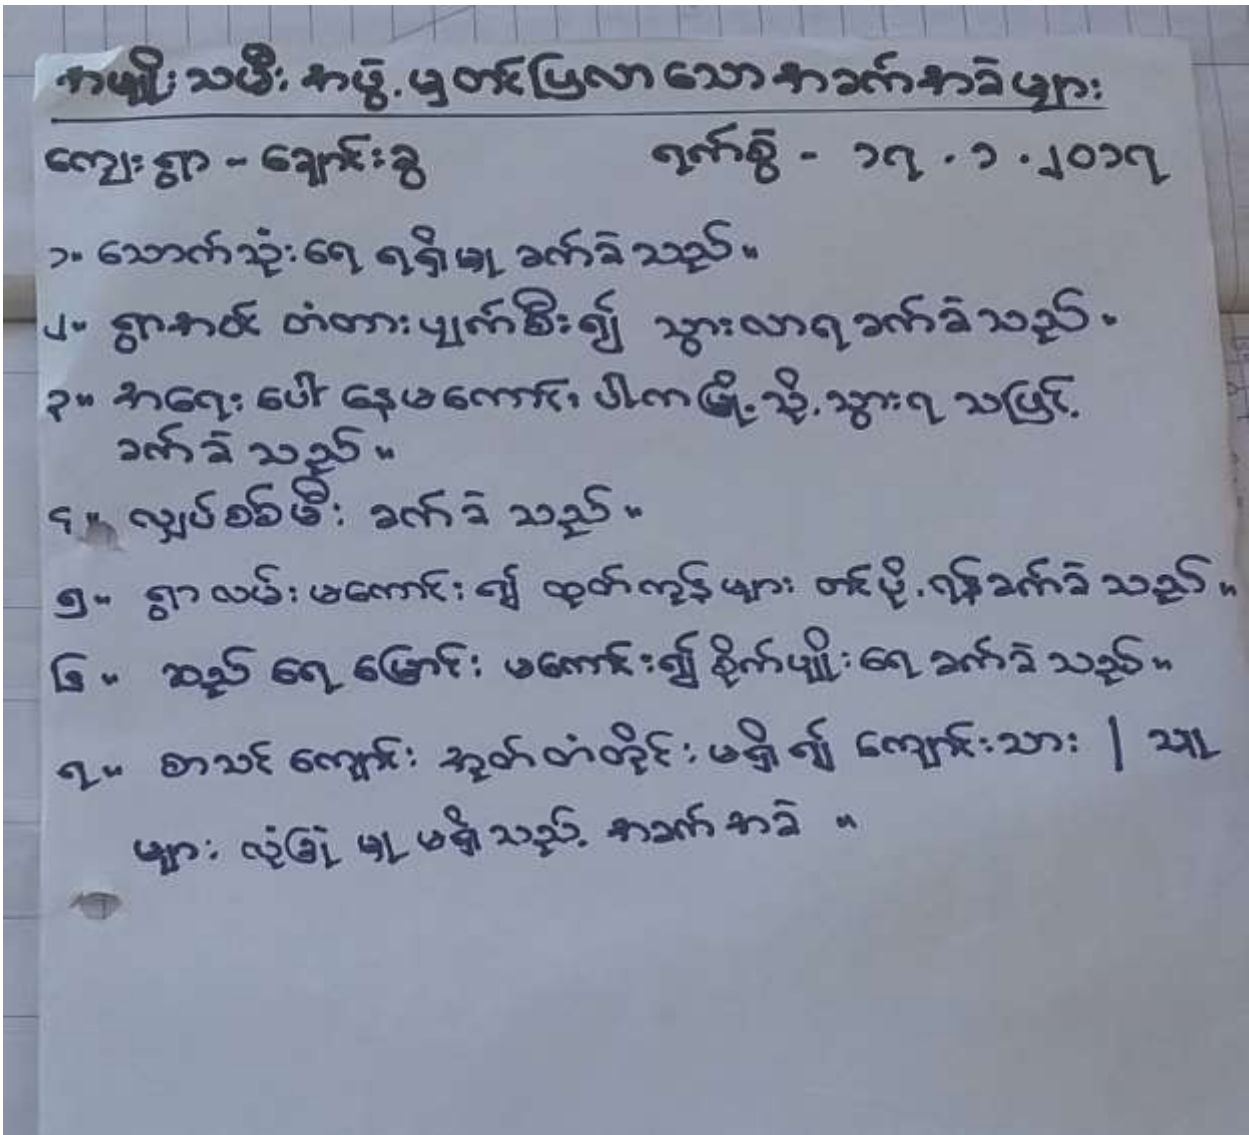 အမျိုးသမီးအဖွဲ့မှတင်ပြလာသောအခက်အခဲများ
ကျေးရွာ - ချောင်းခွ ရက်စွဲ - ၁၇.၁.၂၀၁၇
၁။ သောက်သုံးရေ ရရှိမှု ခက်ခဲသည်။
၂။ ရွာအဝင် တံတားပျက်စီး၍ သွားလာရခက်ခဲသည်။
၃။ အရေးပေါ် နေမကောင်း၊ ပါကမြို့သို့သွားရသဖြင့်
ခက်ခဲသည်။
၄။ လျှပ်စစ်မီး ခက်ခဲသည်။
၅။ ရွာလမ်းမကောင်း၍ ထုတ်ကုန်များ တင်ပို့ရန်ခက်ခဲသည်။
၆။ ဆည်ရေမြောင်း မကောင်း၍စိုက်ပျိုးရေခက်ခဲသည်။
၇။ စာသင်ကျောင်း အုတ်တံတိုင်းမရှိ၍ ကျောင်းသား | သူ
များ လုံခြုံမှုမရှိသည့် အခက်အခဲ ။